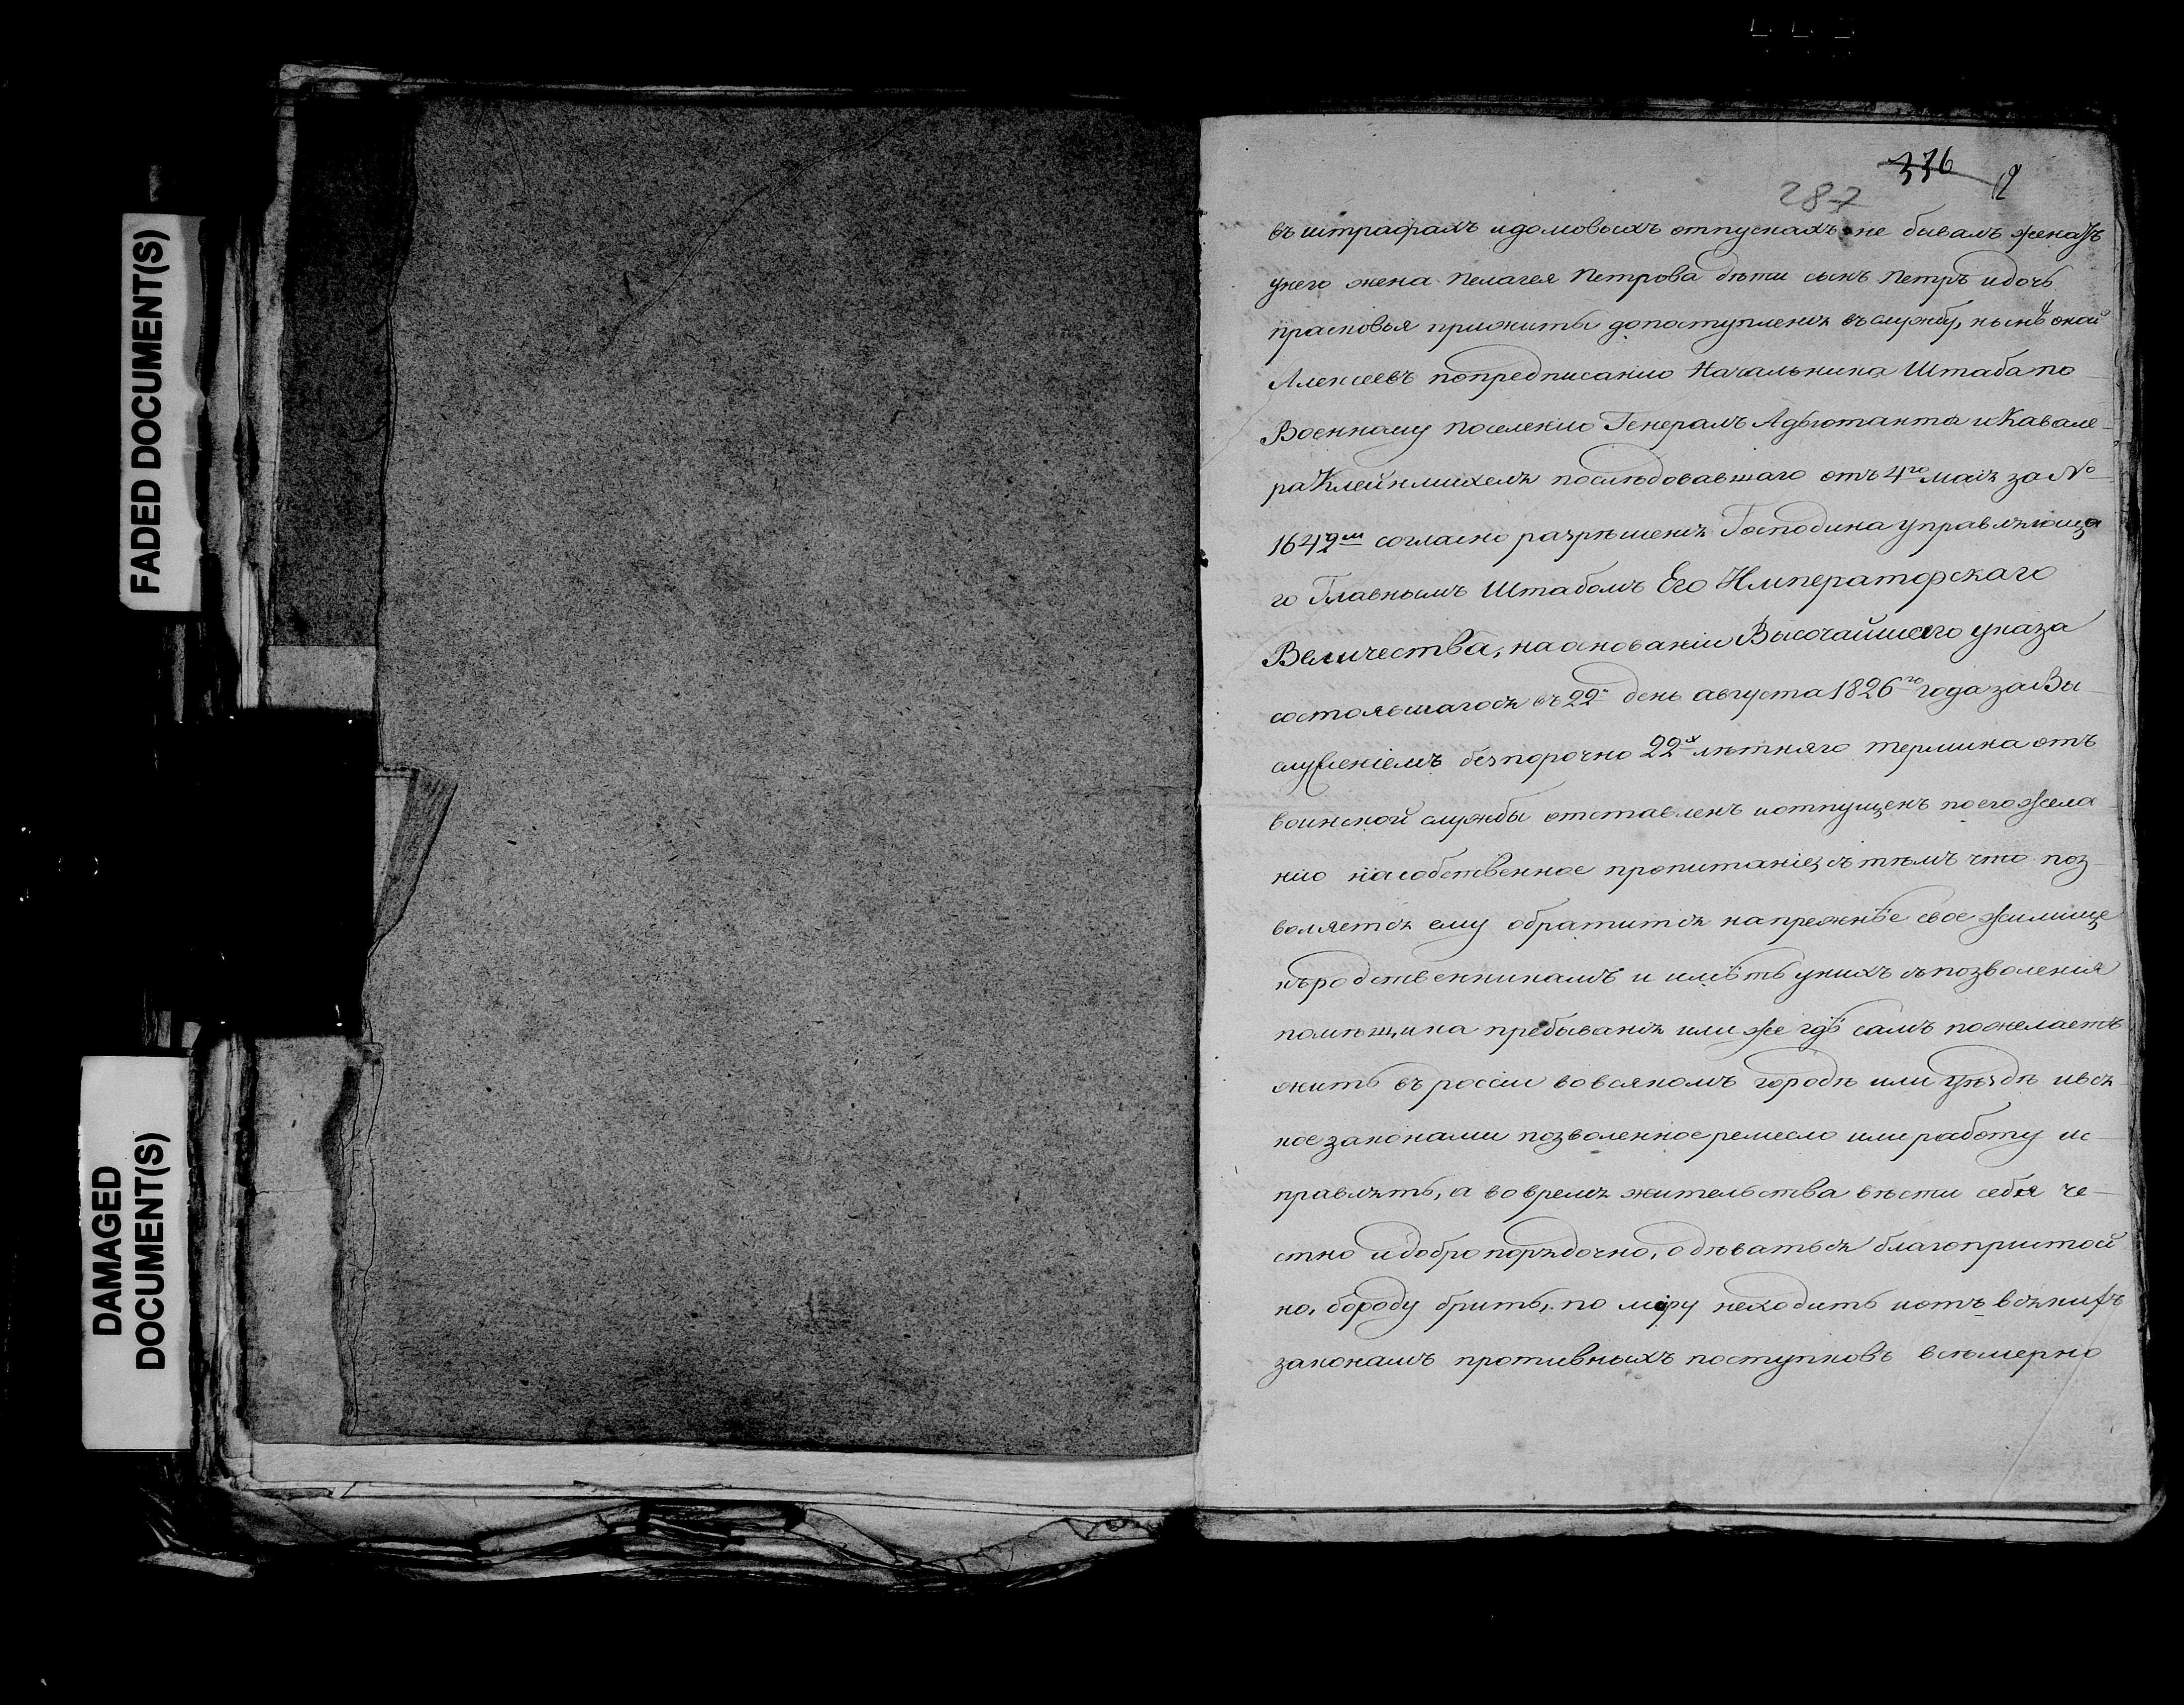 FADED DOCUMENT(S)
DAMAGED
DOCUMENT(S)
336
287
въ штрафахъ идомовыхъ отпускахъ не бывалъ женатъ
унего жена Пелагея Петрова дѣти сынъ Петръ идочь
прасковья прижиты допоступленія въслужбу, нынѣ оной
Алексеевъ попредписанію Начальника Штаба по
Военному поселенію Генералъ Адьютанта иКавале-
ра Клейнмихеля послѣдовавшаго отъ 4го маія за №
1642м согласно разрѣшенія Господина управляюща
го Главнымъ Штабомъ Его Императорскаго
Величества, наоснованіи Высочайшего указа
состоявшагося въ 22й день августа 1826го года заВы
служеніемъ безпорочно 22х лѣтняго термина отъ
воинской службы отставленъ иотпущенъ поего жела
нію насобственное пропитаніе, съ тѣмъ что поз-
воляется ему обратится напрежнѣе свое жилище
къродственникамъ и имѣть унихъ съпозволенія
помѣщика пребыванія или же гдѣ самъ пожелаетъ
жить въ россіи вовсякомъ городѣ или уѣздѣ ився
кое законами позволенное ремесло или работу ис-
правлять, а вовремя жительства вѣсти себя че-
стно идобропорядочно, одѣваться благопристой
но, бороду брить, по міру неходить иотъ всякихъ
законамъ противныхъ поступковъ всѣмерно